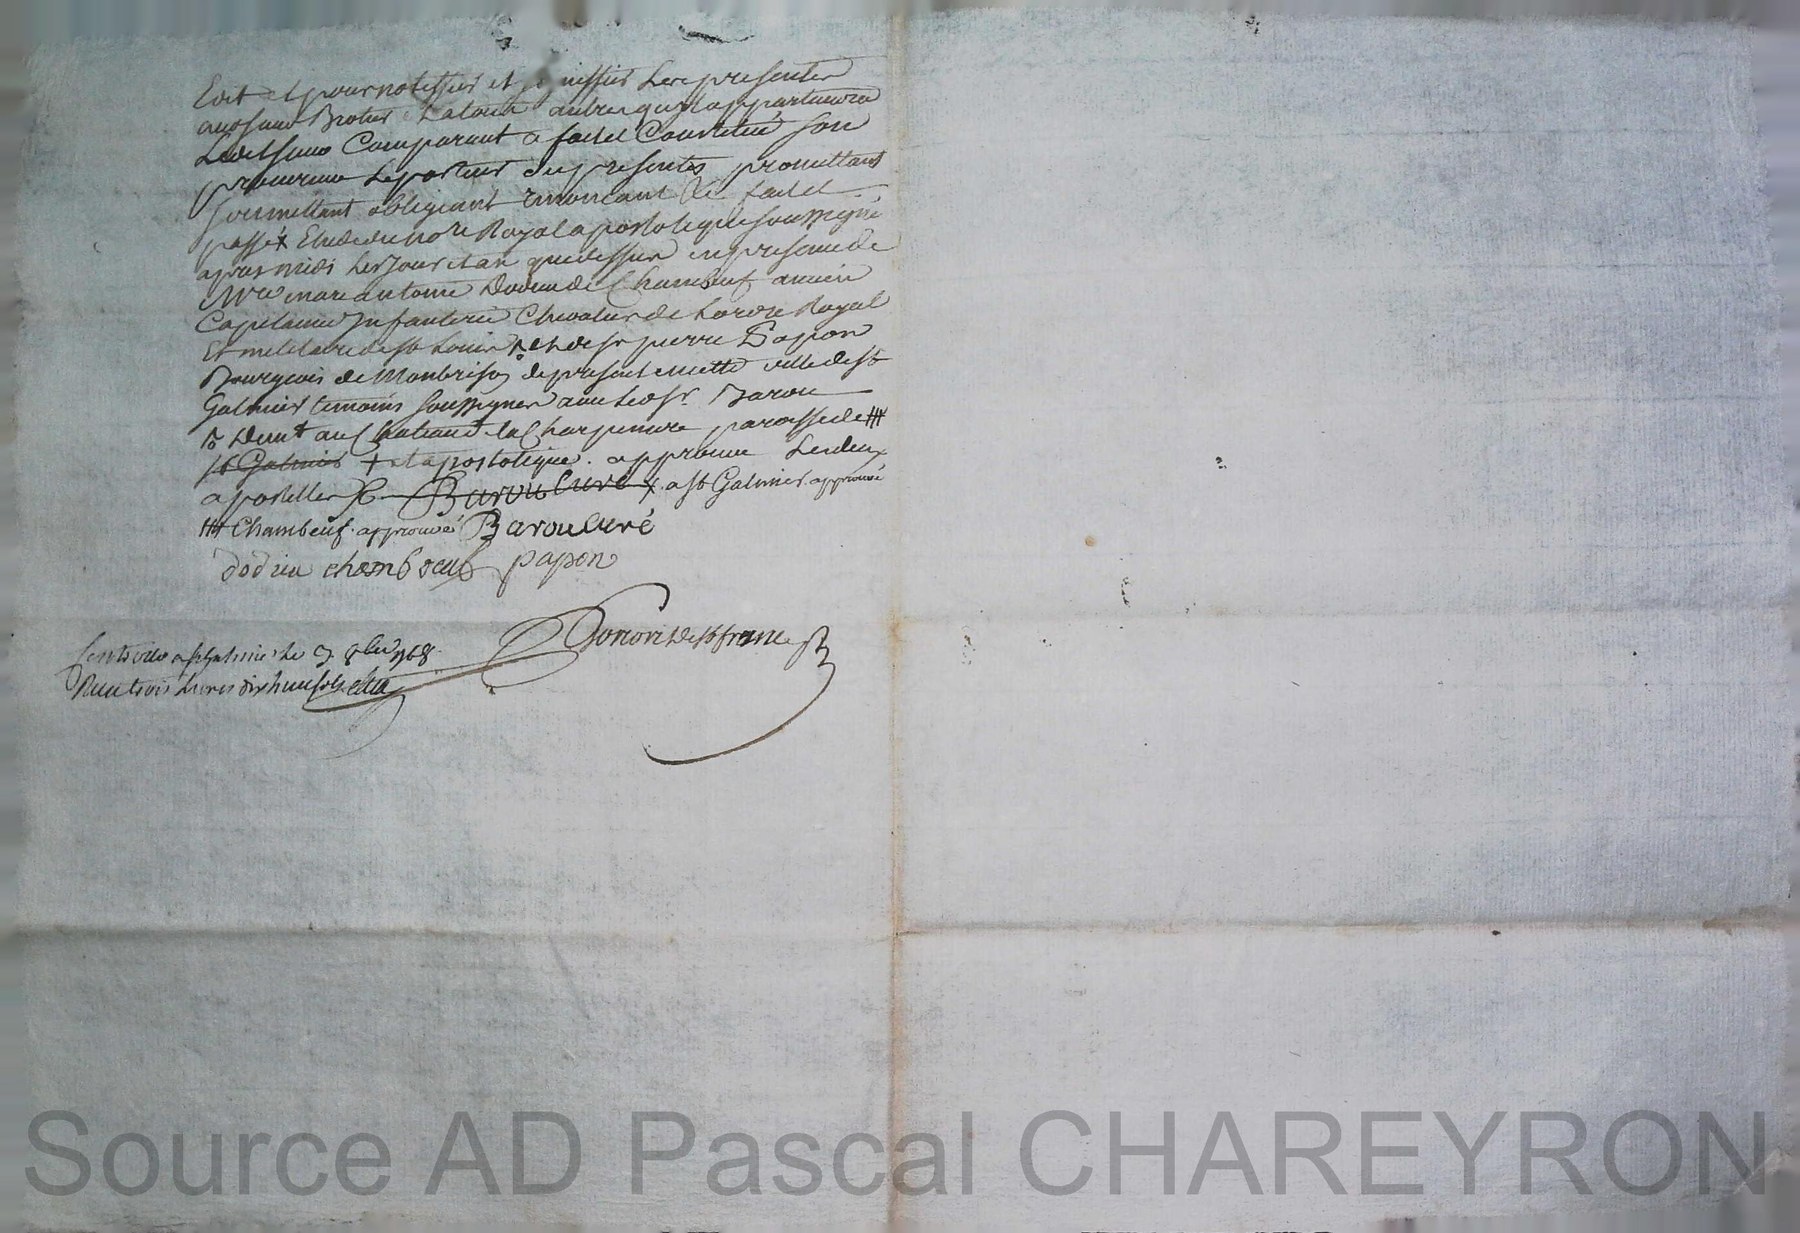 Edit et pour notiffier et signiffier les presentes
audsieur Brotier Latour autres qu'il appartiendra
Ledit sieur Comparant a fait et Constitué son
procureur Le porteur des presentes promettant
soumettant obligeant renonçant &c fait et
passé x Etude du no.re Royal apostolique soussigné
apres midi les jour et an que dessus en presence de
M.re marc antoine Dodieu de Chambeuf ancien
Capitaine Infanterie Chevalier de Lordre Royal
Et militaire de st Louis et de sr pierre Papon
Bourgeois de Montbrison de present en cette ville de st
Galmier temoins soussignes avec led sr. Barou
dem.t au Chateau de la Charpiniere paroisse de ###
st Galmier + et apostolique. approuvé Les deux
apostilles &c Barou Curé x. a st Galmier. approuvé
### Chambeuf. approuvé Barou Curé
dodieu chamboeuf papon
Gonon de st fresne
Contrôlé a st Galmier le 9 8bre 1768
Reçu trois Livres dix huit sols
Source AD Pascal CHAREYRON